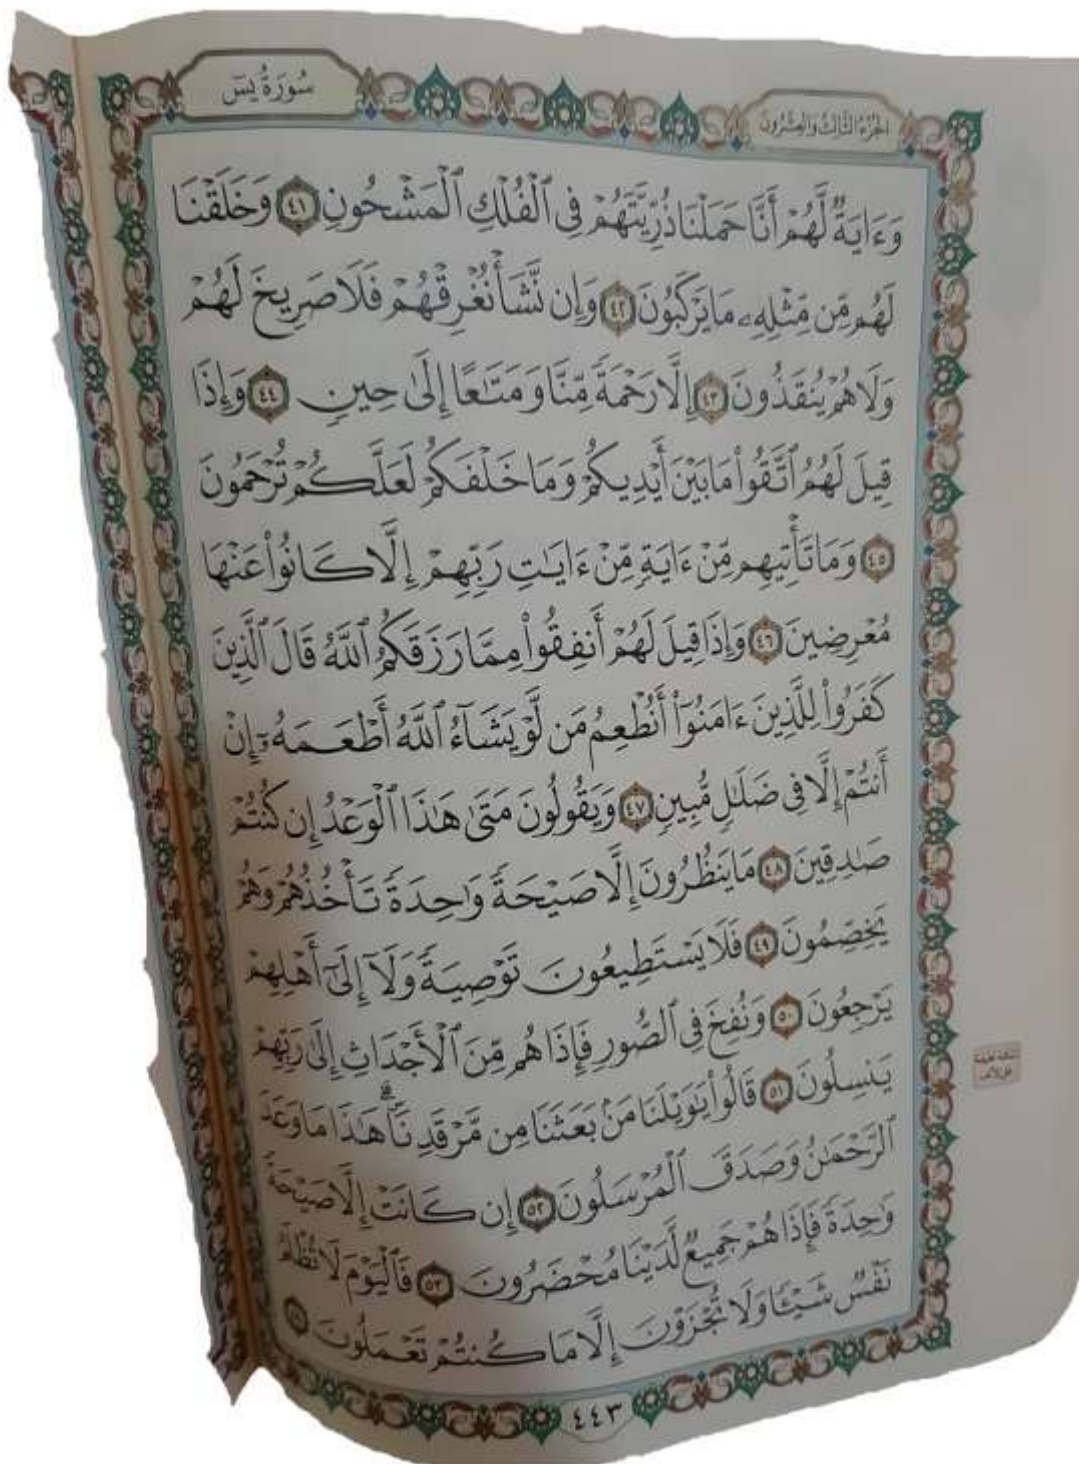 الجزء الثالث والعشرون
سورة يس
وَءَايَةٌ لَّهُمْ أَنَّا حَمَلْنَا ذُرِّيَّتَهُمْ فِي ٱلْفُلْكِ ٱلْمَشْحُونِ ٤١ وَخَلَقْنَا
لَهُم مِّن مِّثْلِهِۦ مَا يَرْكَبُونَ ٤٢ وَإِن نَّشَأْ نُغْرِقْهُمْ فَلَا صَرِيخَ لَهُمْ
وَلَا هُمْ يُنقَذُونَ ٤٣ إِلَّا رَحْمَةً مِّنَّا وَمَتَٰعًا إِلَىٰ حِينٍ ٤٤ وَإِذَا
قِيلَ لَهُمُ ٱتَّقُوا۟ مَا بَيْنَ أَيْدِيكُمْ وَمَا خَلْفَكُمْ لَعَلَّكُمْ تُرْحَمُونَ
٤٥ وَمَا تَأْتِيهِم مِّنْ ءَايَةٍ مِّنْ ءَايَٰتِ رَبِّهِمْ إِلَّا كَانُوا۟ عَنْهَا
مُعْرِضِينَ ٤٦ وَإِذَا قِيلَ لَهُمْ أَنفِقُوا۟ مِمَّا رَزَقَكُمُ ٱللَّهُ قَالَ ٱلَّذِينَ
كَفَرُوا۟ لِلَّذِينَ ءَامَنُوٓا۟ أَنُطْعِمُ مَن لَّوْ يَشَآءُ ٱللَّهُ أَطْعَمَهُۥٓ إِنْ
أَنتُمْ إِلَّا فِي ضَلَٰلٍ مُّبِينٍ ٤٧ وَيَقُولُونَ مَتَىٰ هَٰذَا ٱلْوَعْدُ إِن كُنتُمْ
صَٰدِقِينَ ٤٨ مَا يَنظُرُونَ إِلَّا صَيْحَةً وَٰحِدَةً تَأْخُذُهُمْ وَهُمْ
يَخِصِّمُونَ ٤٩ فَلَا يَسْتَطِيعُونَ تَوْصِيَةً وَلَآ إِلَىٰٓ أَهْلِهِمْ
يَرْجِعُونَ ٥٠ وَنُفِخَ فِي ٱلصُّورِ فَإِذَا هُم مِّنَ ٱلْأَجْدَاثِ إِلَىٰ رَبِّهِمْ
يَنسِلُونَ ٥١ قَالُوا۟ يَٰوَيْلَنَا مَنۢ بَعَثَنَا مِن مَّرْقَدِنَا ۜ هَٰذَا مَا وَعَدَ
ٱلرَّحْمَٰنُ وَصَدَقَ ٱلْمُرْسَلُونَ ٥٢ إِن كَانَتْ إِلَّا صَيْحَةً
وَٰحِدَةً فَإِذَا هُمْ جَمِيعٌ لَّدَيْنَا مُحْضَرُونَ ٥٣ فَٱلْيَوْمَ لَا تُظْلَمُ
نَفْسٌ شَيْـًٔا وَلَا تُجْزَوْنَ إِلَّا مَا كُنتُمْ تَعْمَلُونَ ٥٤
٤٤٣